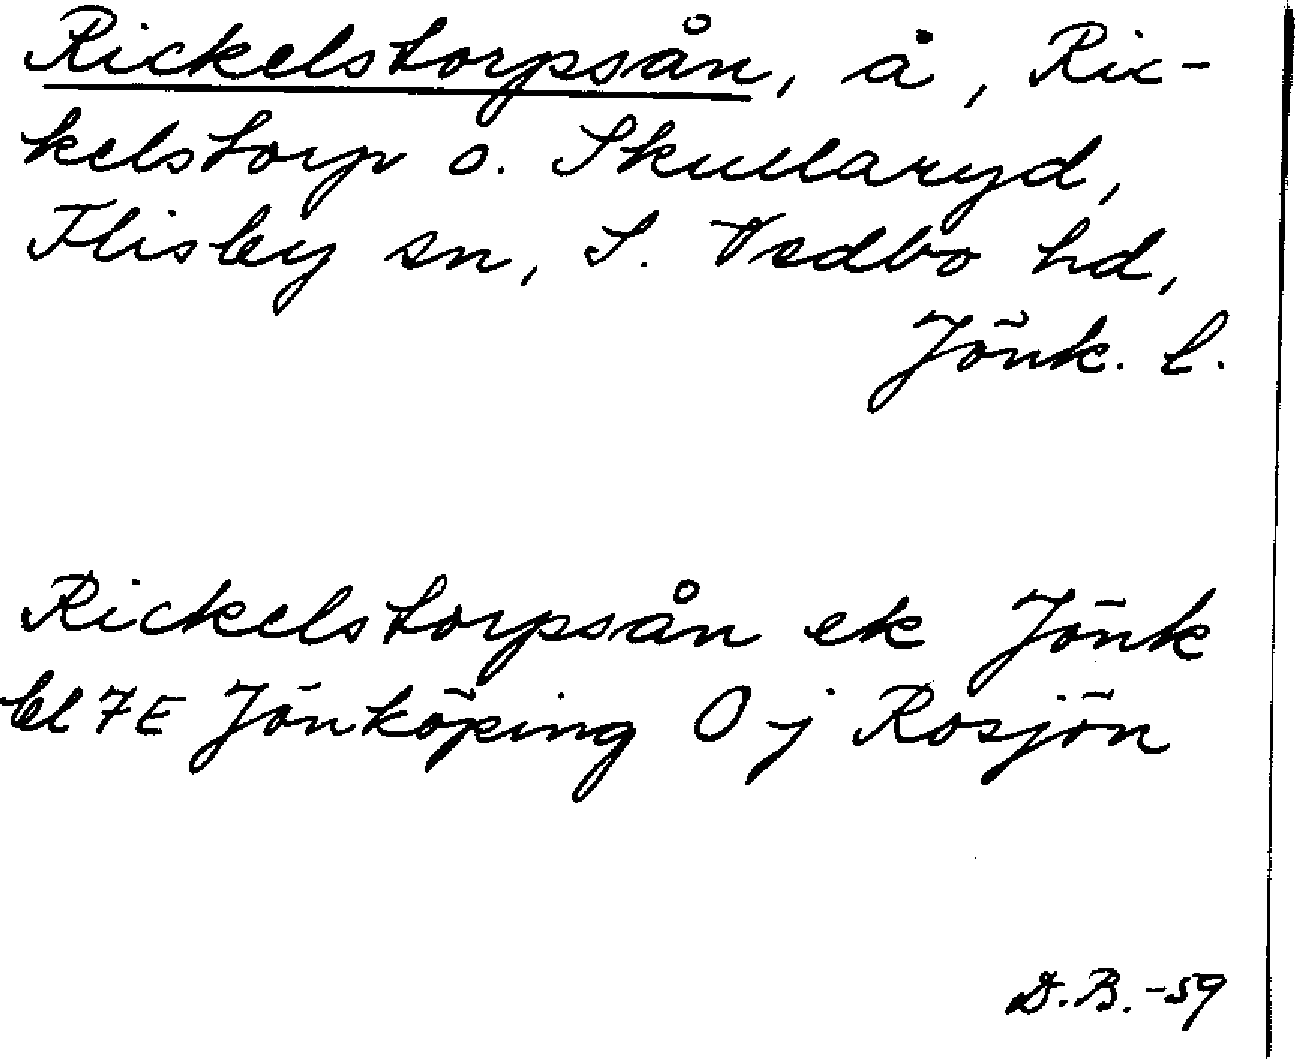 Rickelstorpsån, å, Ric-
kelstorp o. Skullaryd,
Flisby sn, S. Vedbo hd,
Jönk. l.
Rickelstorpsån ek Jönk
bl 7E Jönköping 0 j Rosjön
D.B.-59